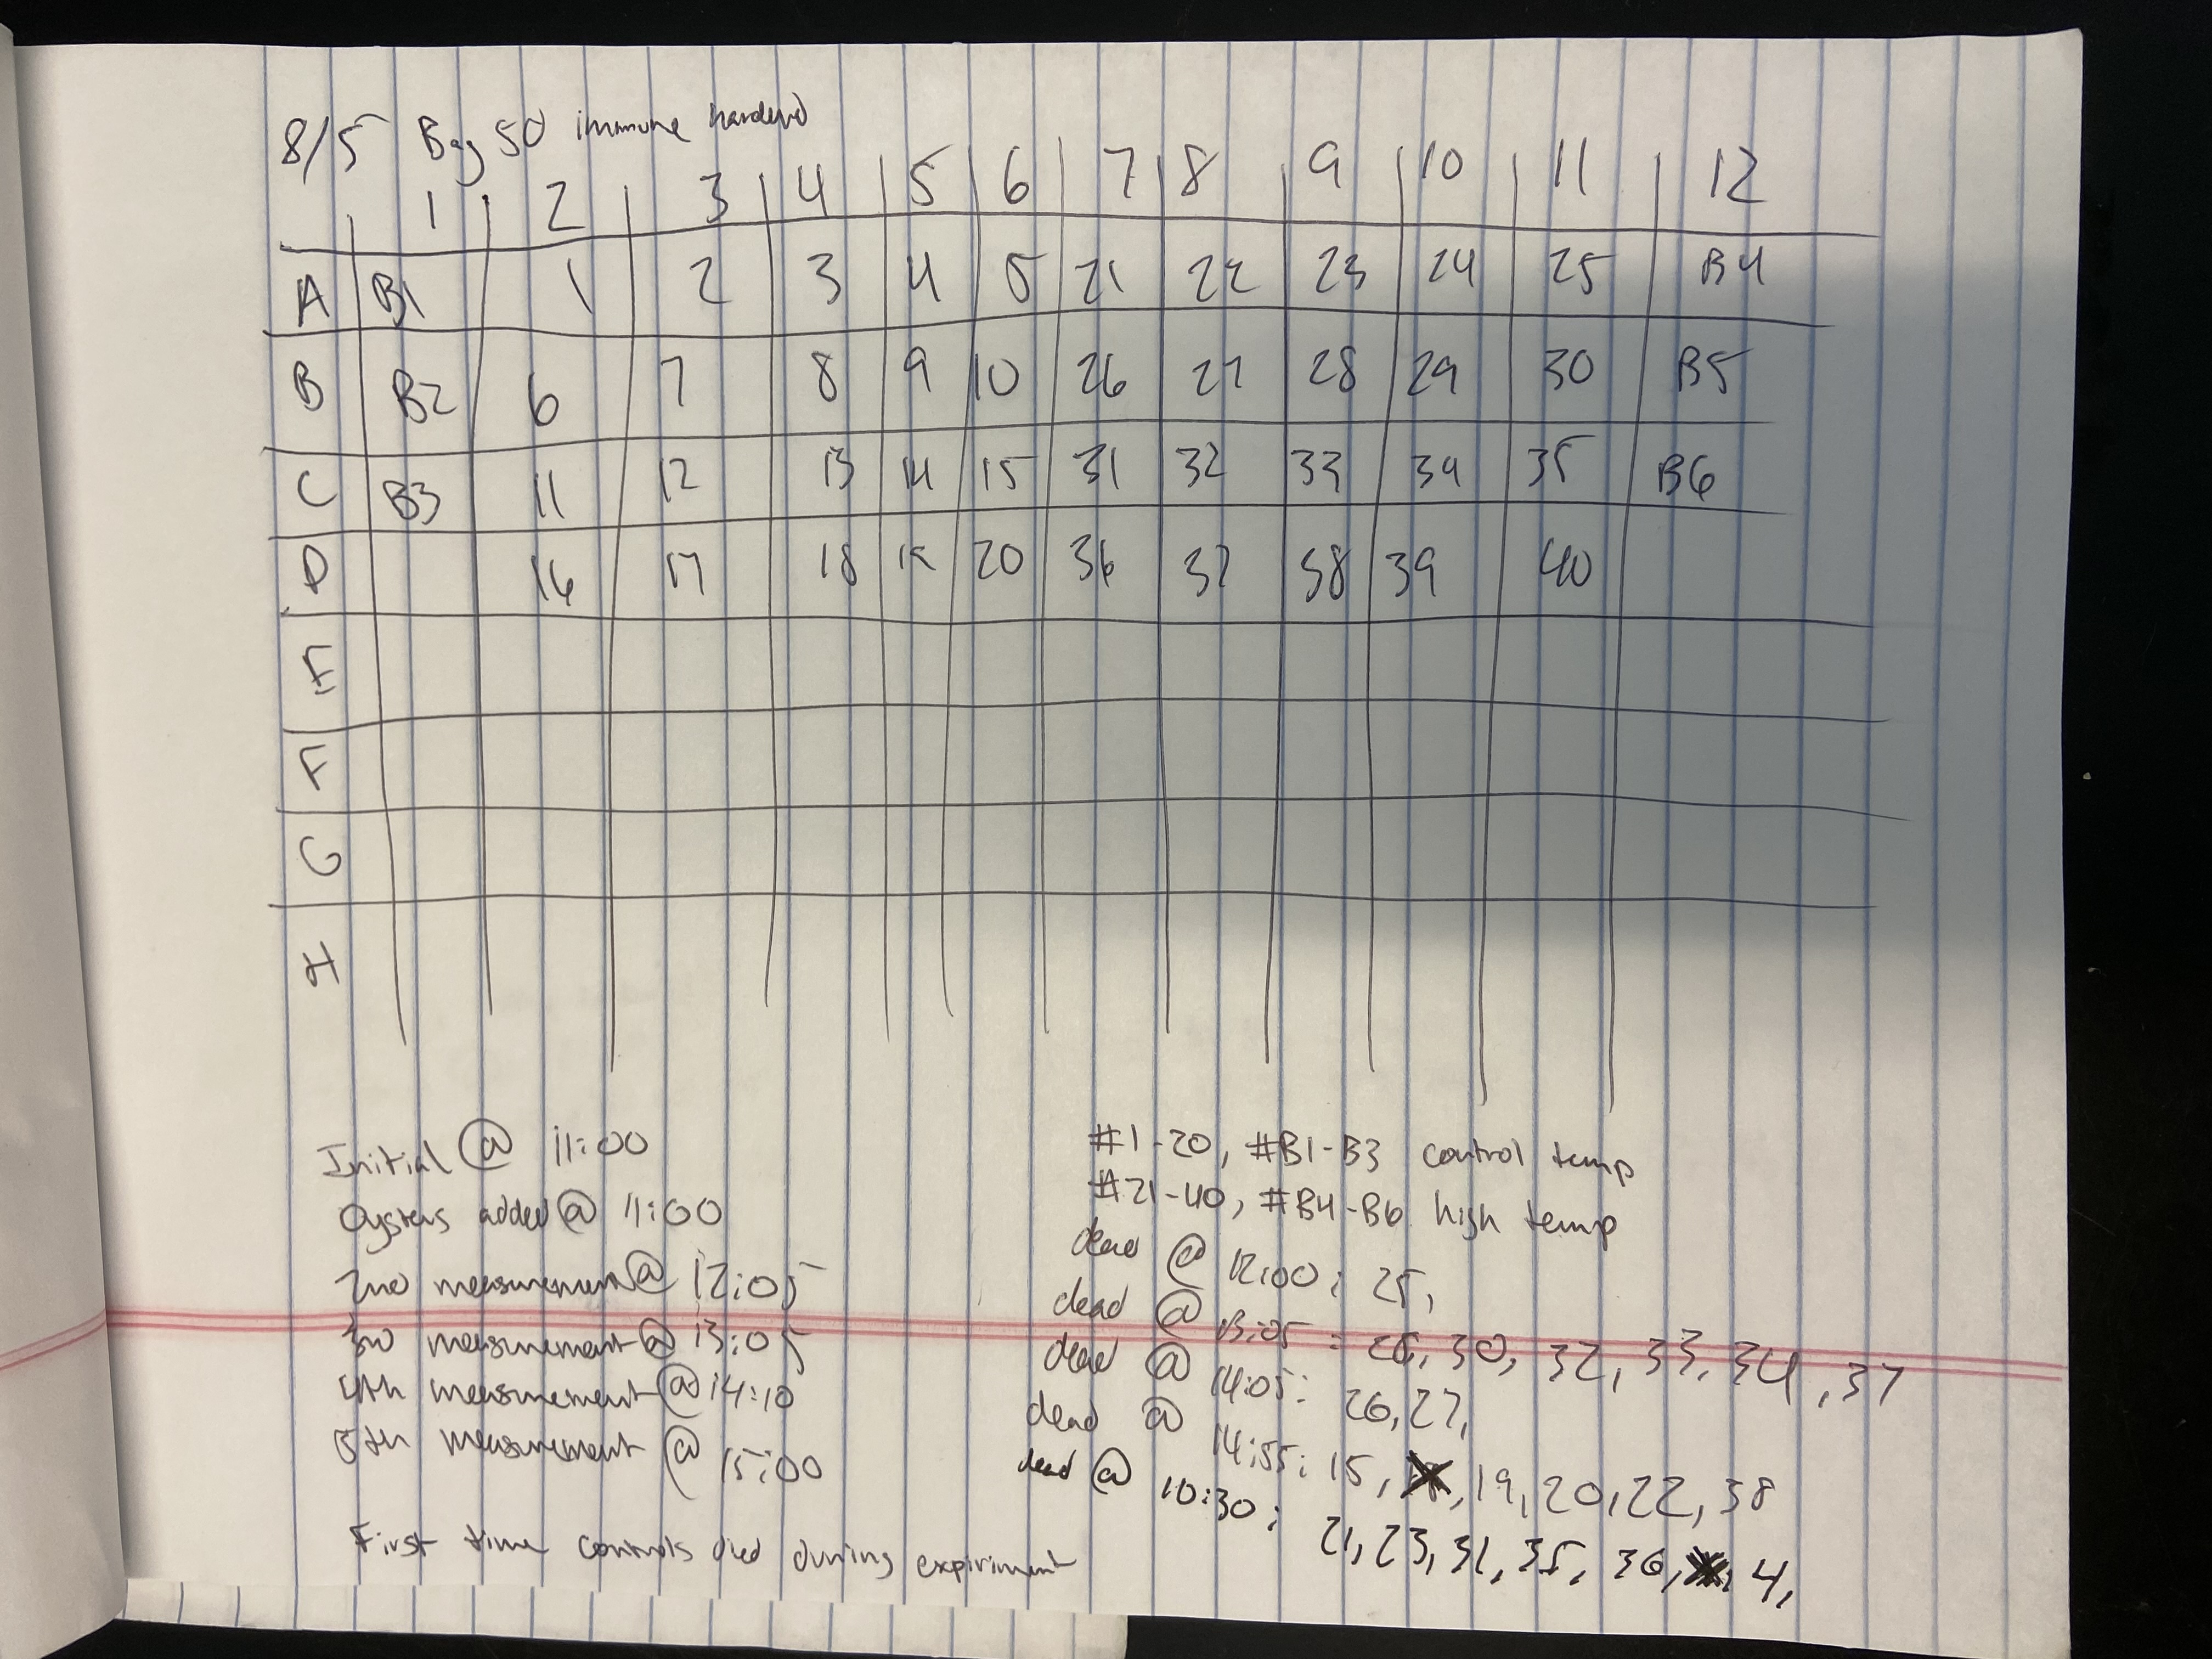 8/5 Bag 50 immune hardend
1 2 3 4 5 6 7 8 9 10 11 12
A B1 1 2 3 4 5 21 22 23 24 25 B4
B B2 6 7 8 9 10 26 27 28 29 30 B5
C B3 11 12 13 14 15 31 32 33 34 35 B6
D 16 17 18 19 20 36 37 38 39 40
E
F
G
H
Initial @ 11:00
Oysters added @ 11:00
2nd measurement @ 12:05
3rd measurement @ 13:05
4th measurement @ 14:10
5th measurement @ 15:00
First time controls died during expiriment
#1-20, #B1-B3 control temp
#21-40, #B4-B6 high temp
dead @ 12:00: 25,
dead @ 13:05: 30, 32, 33, 34, 37
dead @ 14:05: 26, 27,
dead @ 14:55: 15, 19, 20, 22, 38
dead @ 10:30: 21, 23, 31, 35, 36, 4,